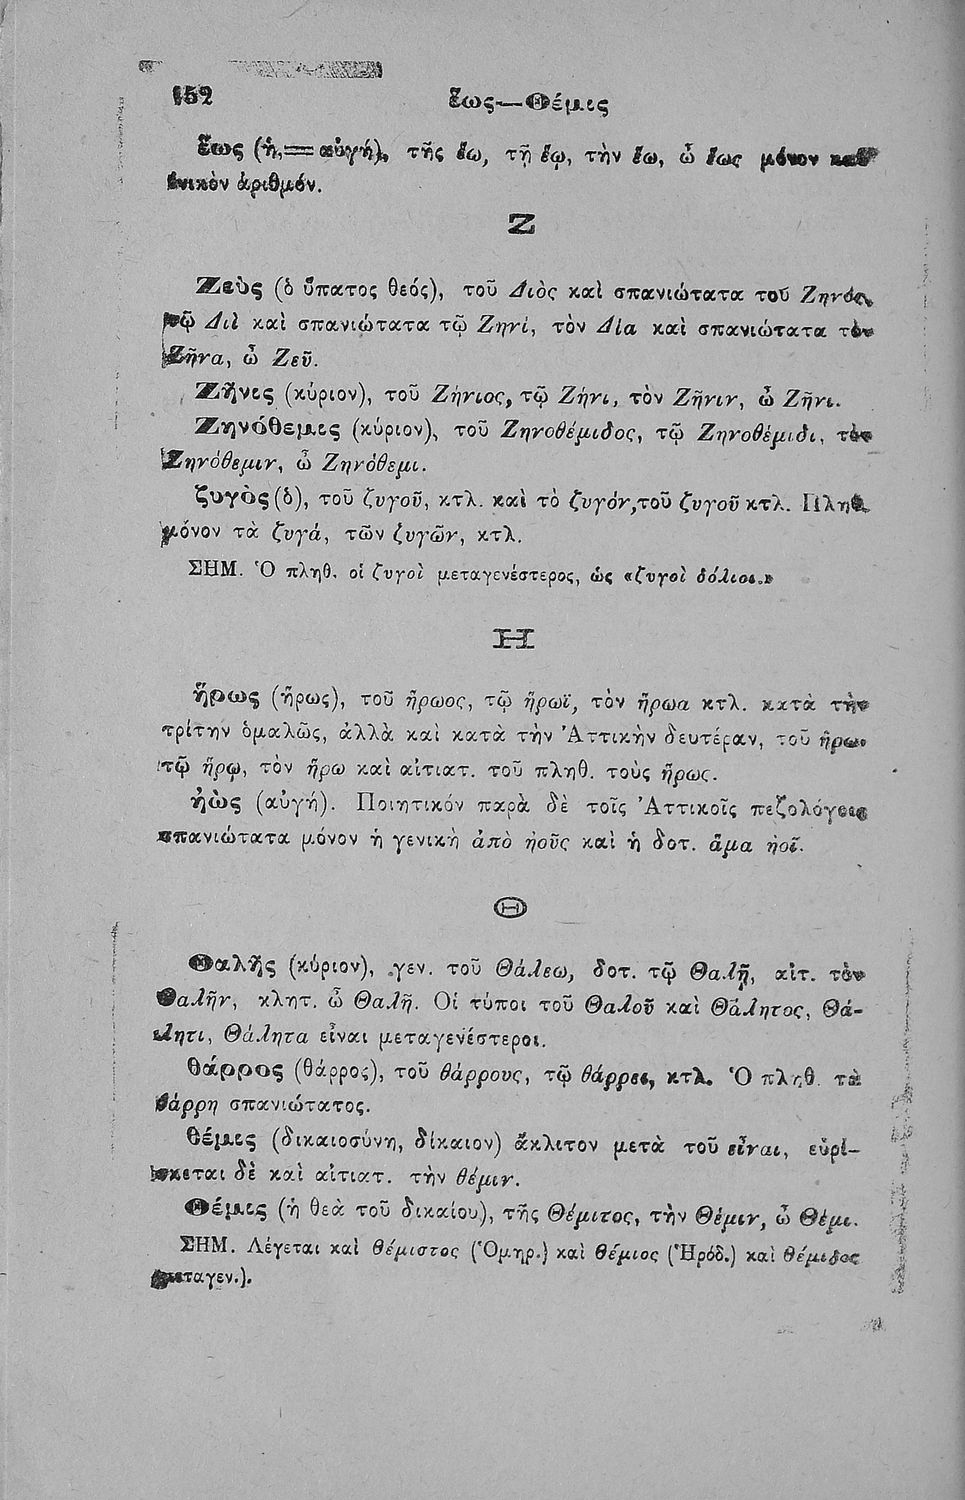 152 ἕως—Θέμις
ἕως (ἡ,=αὐγή), τῆς ἕω, τῇ ἕῳ, τὴν ἕω, ὦ ἕως μόνον καθ'
ἑνικὸν ἀριθμόν.
Ζ
Ζεὺς (ὁ ὕπατος θεός), τοῦ Διὸς καὶ σπανιώτατα τοῦ Ζηνός,
τῷ Διῒ καὶ σπανιώτατα τῷ Ζηνί, τὸν Δία καὶ σπανιώτατα τὸν
Ζῆνα, ὦ Ζεῦ.
Ζῆνις (κύριον), τοῦ Ζήνιος, τῷ Ζήνι, τὸν Ζῆνιν, ὦ Ζῆνι.
Ζηνόθεμις (κύριον), τοῦ Ζηνοθέμιδος, τῷ Ζηνοθέμιδι, τὸν
Ζηνόθεμιν, ὦ Ζηνόθεμι.
ζυγὸς (ὁ), τοῦ ζυγοῦ, κτλ. καὶ τὸ ζυγόν, τοῦ ζυγοῦ κτλ. Πληθ.
μόνον τὰ ζυγά, τῶν ζυγῶν, κτλ.
ΣΗΜ. Ὁ πληθ. οἱ ζυγοὶ μεταγενέστερος, ὡς «ζυγοὶ δόλιοι.»
Η
ἥρως (ἥρως), τοῦ ἥρωος, τῷ ἥρωϊ, τὸν ἥρωα κτλ. κατὰ τὴν
τρίτην ὁμαλῶς, ἀλλὰ καὶ κατὰ τὴν Ἀττικὴν δευτέραν, τοῦ ἥρω,
τῷ ἥρῳ, τὸν ἥρω καὶ αἰτιατ. τοῦ πληθ. τοὺς ἥρως.
ἠὼς (αὐγή). Ποιητικόν παρὰ δὲ τοῖς Ἀττικοῖς πεζολόγοις
σπανιώτατα μόνον ἡ γενικὴ ἀπὸ ἠοῦς καὶ ἡ δοτ. ἅμα ἠοῖ.
Θ
Θαλῆς (κύριον), γεν. τοῦ Θάλεω, δοτ. τῷ Θαλῇ, αἰτ. τὸν
Θαλῆν, κλητ. ὦ Θαλῆ. Οἱ τύποι τοῦ Θαλοῦ καὶ Θάλητος, Θά-
λητι, Θάλητα εἶναι μεταγενέστεροι.
θάρρος (θάρρος), τοῦ θάρρους, τῷ θάρρει, κτλ. Ὁ πληθ. τὰ
θάρρη σπανιώτατος.
θέμις (δικαιοσύνη, δίκαιον) ἄκλιτον μετὰ τοῦ εἶναι, εὑρί-
σκεται δὲ καὶ αἰτιατ. τὴν θέμιν.
Θέμις (ἡ θεὰ τοῦ δικαίου), τῆς Θέμιτος, τὴν Θέμιν, ὦ Θέμι.
ΣΗΜ. Λέγεται καὶ Θέμιστος (Ὁμηρ.) καὶ Θέμιος (Ἡρόδ.) καὶ Θέμιδος
(μεταγεν.).